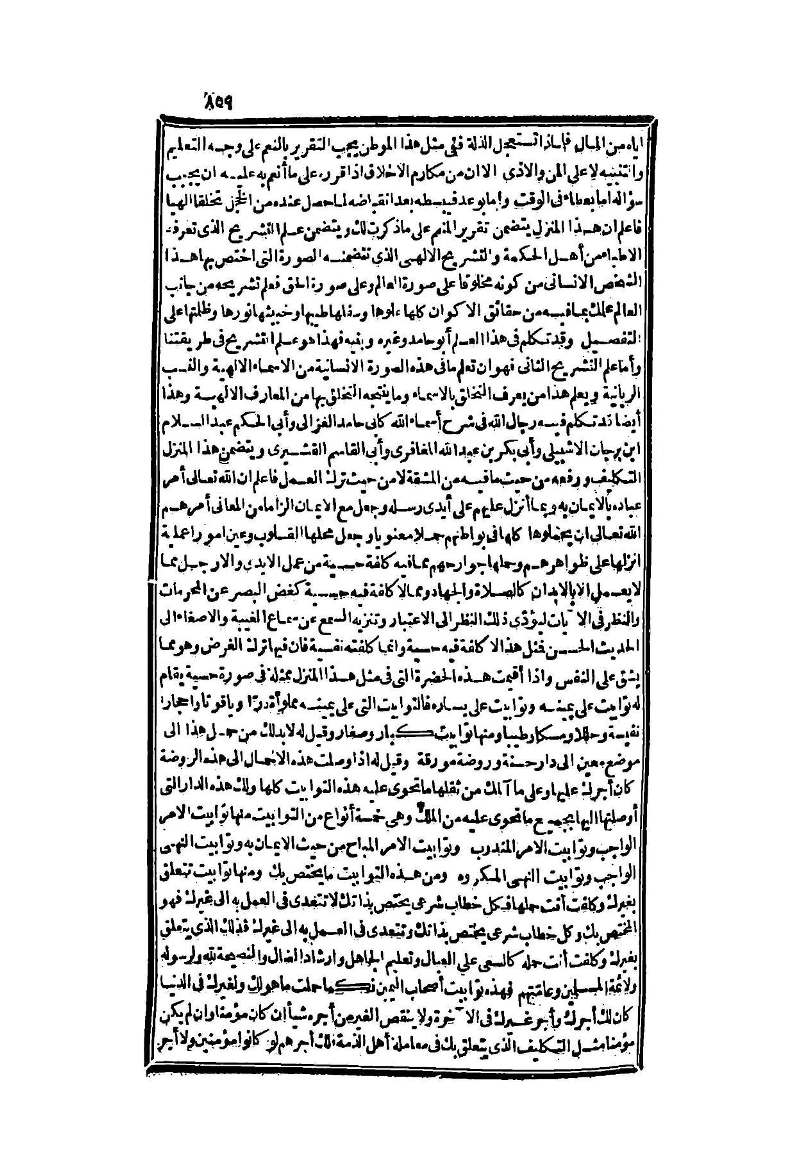 ٨٥٩
اياه من المال فلماذا تستعجل الذلة ففي مثل هذا الموطن يجب التقرير بالنعم على وجه التعليم
والتنبيه لا على المن والاذى الا ان من مكارم الاخلاق اذا قرره على ما أنعم به عليه ان يجيب
سؤاله اما بعطاء فى الوقت واما بوعد فيبسطه بعد انقباضه لما حصل عنده من الخجل تخلقا الهيا
فاعلم ان هذا المنزل يتضمن تقرير المنعم على ماذكرت لك ويتضمن علم التشريح الذى تعرفه
الاطباء من أهل الحكمة والتشريح الالهى الذى تتضمنه الصورة التى اختص بها هذا
الشخص الانسانى من كونه مخلوقا على صورة العالم وعلى صورة الحق فعلم تشريحه من جانب
العالم علمك بما فيه من حقائق الاكوان كلها علوها وسفلها طيبها وخبيثها نورها وظلمتها على
التفصيل وقد تكلم فى هذا العلم أبو حامد وغيره وبينه فهذا هو علم التشريح فى طريقتنا
وأما علم التشريح الثانى فهو ان تعلم ما فى هذه الصورة الانسانية من الاسماء الالهية والنسب
الربانية ويعلم هذا من يعرف التخلق بالاسماء وما ينتجه التخلق بها من المعارف الالهية وهذا
أيضا قد تكلم فيه رجال الله فى شرح أسماء الله كابى حامد الغزالى وأبى الحكم عبد السلام
ابن برجان الاشبيلى وأبى بكر بن عبد الله المغافرى وأبى القاسم القشيرى ويتضمن هذا المنزل
التكليف ورفعه من حيث ما فيه من المشقة لا من حيث ترك العمل فاعلم ان الله تعالى أمر
عباده بالايمان به وبما أنزل عليهم على أيدى رسله وجعل مع الايمان الزاما من المعانى أمرهم
الله تعالى ان يحملوها كلها فى بواطنهم حملا معنويا وجعل محلها القلوب وعين امورا عملية
انزلها على ظواهرهم وحملها جوارحهم مما فيه كلفة حسية من عمل الايدى والارجل مما
لا يعمل الا بالابدان كالصلاة والجهاد ومما لا كلفة فيه حسية كغض البصر عن المحرمات
والنظر فى الآيات ليؤدى ذلك النظر الى الاعتبار وتنزيه السمع عن سماع الغيبة والاصغاء الى
الحديث الحسن فمثل هذا لا كلفة فيه حسية وانما كلفته نفسية فان فيها ترك الغرض وهو مما
يشق على النفس واذا أقيمت هذه الحضرة التى فى مثل هذا المنزل ممثلة فى صورة حسية يقام
له توابيت على يمينه وتوابيت على يساره فالتوابيت التى على يمينه مملوأة درا وياقوتا واحجارا
نفيسة وحللا ومسكا وطيبا ومنها توابيت كبار وصغار وقيل له لابد لك من حمل هذا الى
موضع معين الى دار حسنة وروضة مورقة وقيل له اذا وصلت هذه الاحمال الى هذه الروضة
كان أجرك عليها وعلى ما آلمك من ثقلها ما تحوى عليه هذه التوابيت كلها ولك هذه الدار التى
أوصلتها اليها بجميع ما تحوى عليه من الملك وهى خمسة أنواع من التوابيت منها توابيت الامر
الواجب وتوابيت الامر المندوب وتوابيت الامر المباح من حيث الايمان به وتوابيت النهى
الواجب وتوابيت النهى المكروه ومن هذه التوابيت ما يختص بك ومنها توابيت تتعلق
بغيرك وكلفت أنت حملها فكل خطاب شرعى يختص بذاتك لا تتعدى فى العمل به الى غيرك فهو
المختص بك وكل خطاب شرعى يختص بذاتك وتتعدى فى العمل به الى غيرك فذلك الذى يتعلق
بغيرك وكلفت أنت حمله كالسعى على العيال وتعليم الجاهل وارشاد الضال والنصيحة لله ولرسوله
ولائمة المسلمين وعامتهم فهذه توابيت أصحاب اليمين فكما حملت ما هو لك ولغيرك فى الدنيا
كان لك أجرك وأجر غيرك فى الآخرة ولا ينقص الغير من أجره شيأ ان كان مؤمنا وان لم يكن
مؤمنا مثل التكليف الذى يتعلق بك فى معاملة أهل الذمة فلك أجرهم لو كانوا مؤمنين ولا أجر